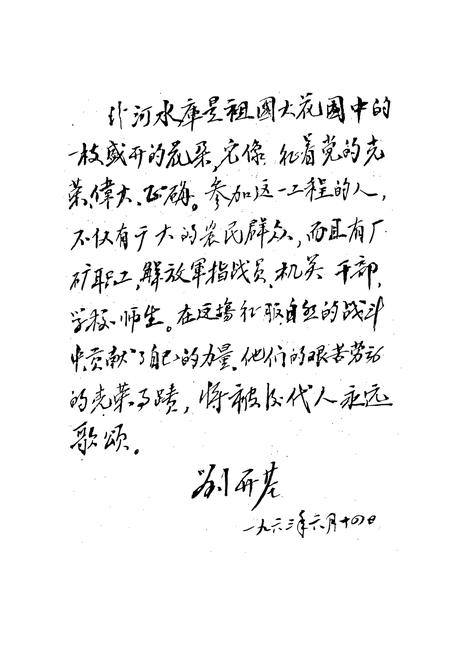 汾河水庫是祖國大花園中的
一枝盛开的花朵,它像征着党的光
荣、偉大、正确。参加这一工程的人,
不仅有广大的农民群众,而且有厂
矿职工,解放軍指战员、机关干部,
学校师生。在这場征服自然的战斗
中貢献了自己的力量。他们的艰苦劳动
的光荣事蹟,将被后代人永远
歌颂。
刘开基
一九六三年六月十四日